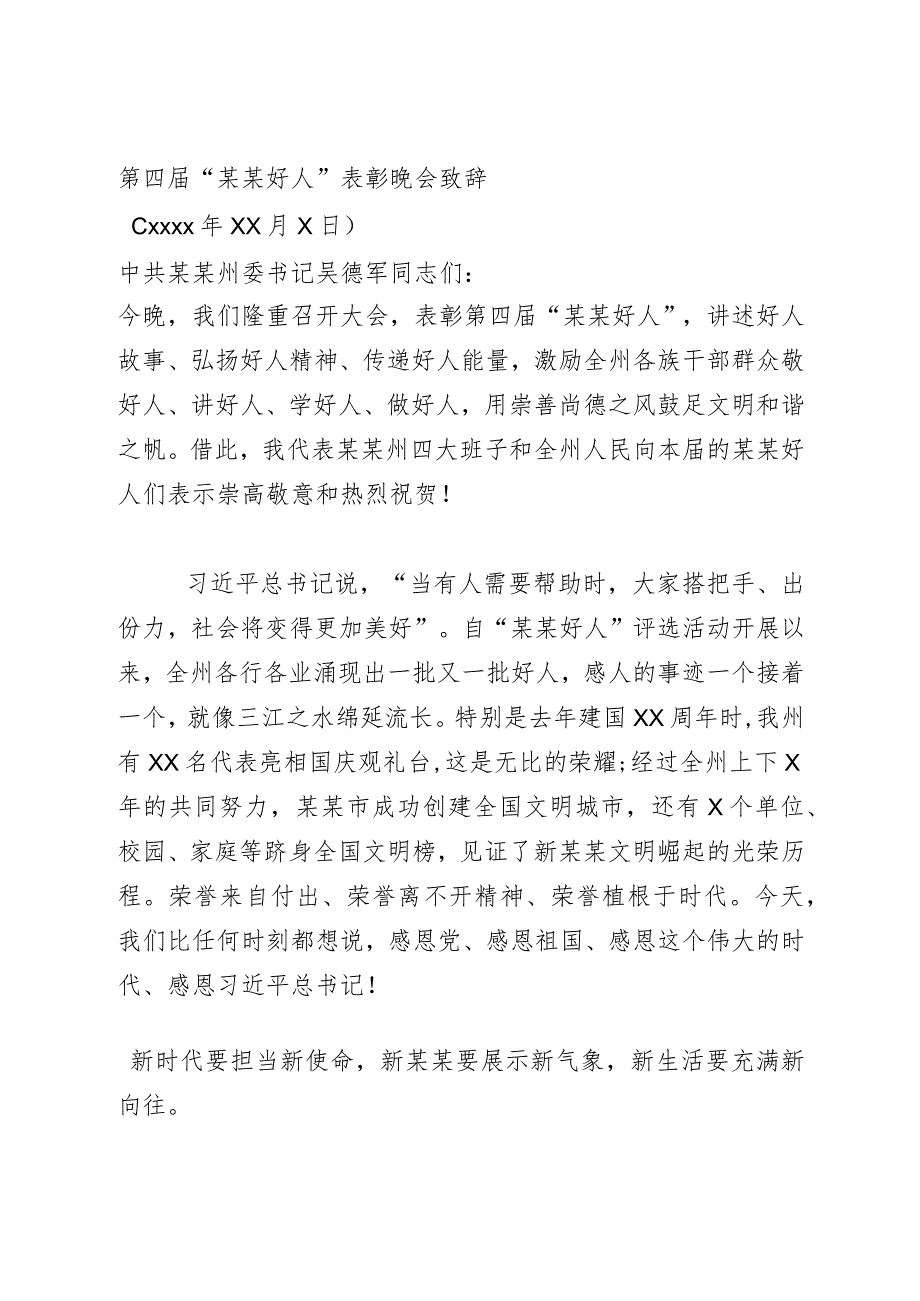 第四届“某某好人”表彰晚会致辞
Cxxxx 年 XX 月 X 日）
中共某某州委书记吴德军同志们：
今晚，我们隆重召开大会，表彰第四届“某某好人”，讲述好人
故事、弘扬好人精神、传递好人能量，激励全州各族干部群众敬
好人、讲好人、学好人、做好人，用崇善尚德之风鼓足文明和谐
之帆。借此，我代表某某州四大班子和全州人民向本届的某某好
人们表示崇高敬意和热烈祝贺！
习近平总书记说，“当有人需要帮助时，大家搭把手、出
份力，社会将变得更加美好”。自“某某好人”评选活动开展以
来，全州各行各业涌现出一批又一批好人，感人的事迹一个接着
一个，就像三江之水绵延流长。特别是去年建国 XX 周年时,我州
有 XX 名代表亮相国庆观礼台,这是无比的荣耀;经过全州上下 X
年的共同努力，某某市成功创建全国文明城市，还有 X 个单位、
校园、家庭等跻身全国文明榜，见证了新某某文明崛起的光荣历
程。荣誉来自付出、荣誉离不开精神、荣誉植根于时代。今天，
我们比任何时刻都想说，感恩党、感恩祖国、感恩这个伟大的时
代、感恩习近平总书记！
新时代要担当新使命，新某某要展示新气象，新生活要充满新
向往。